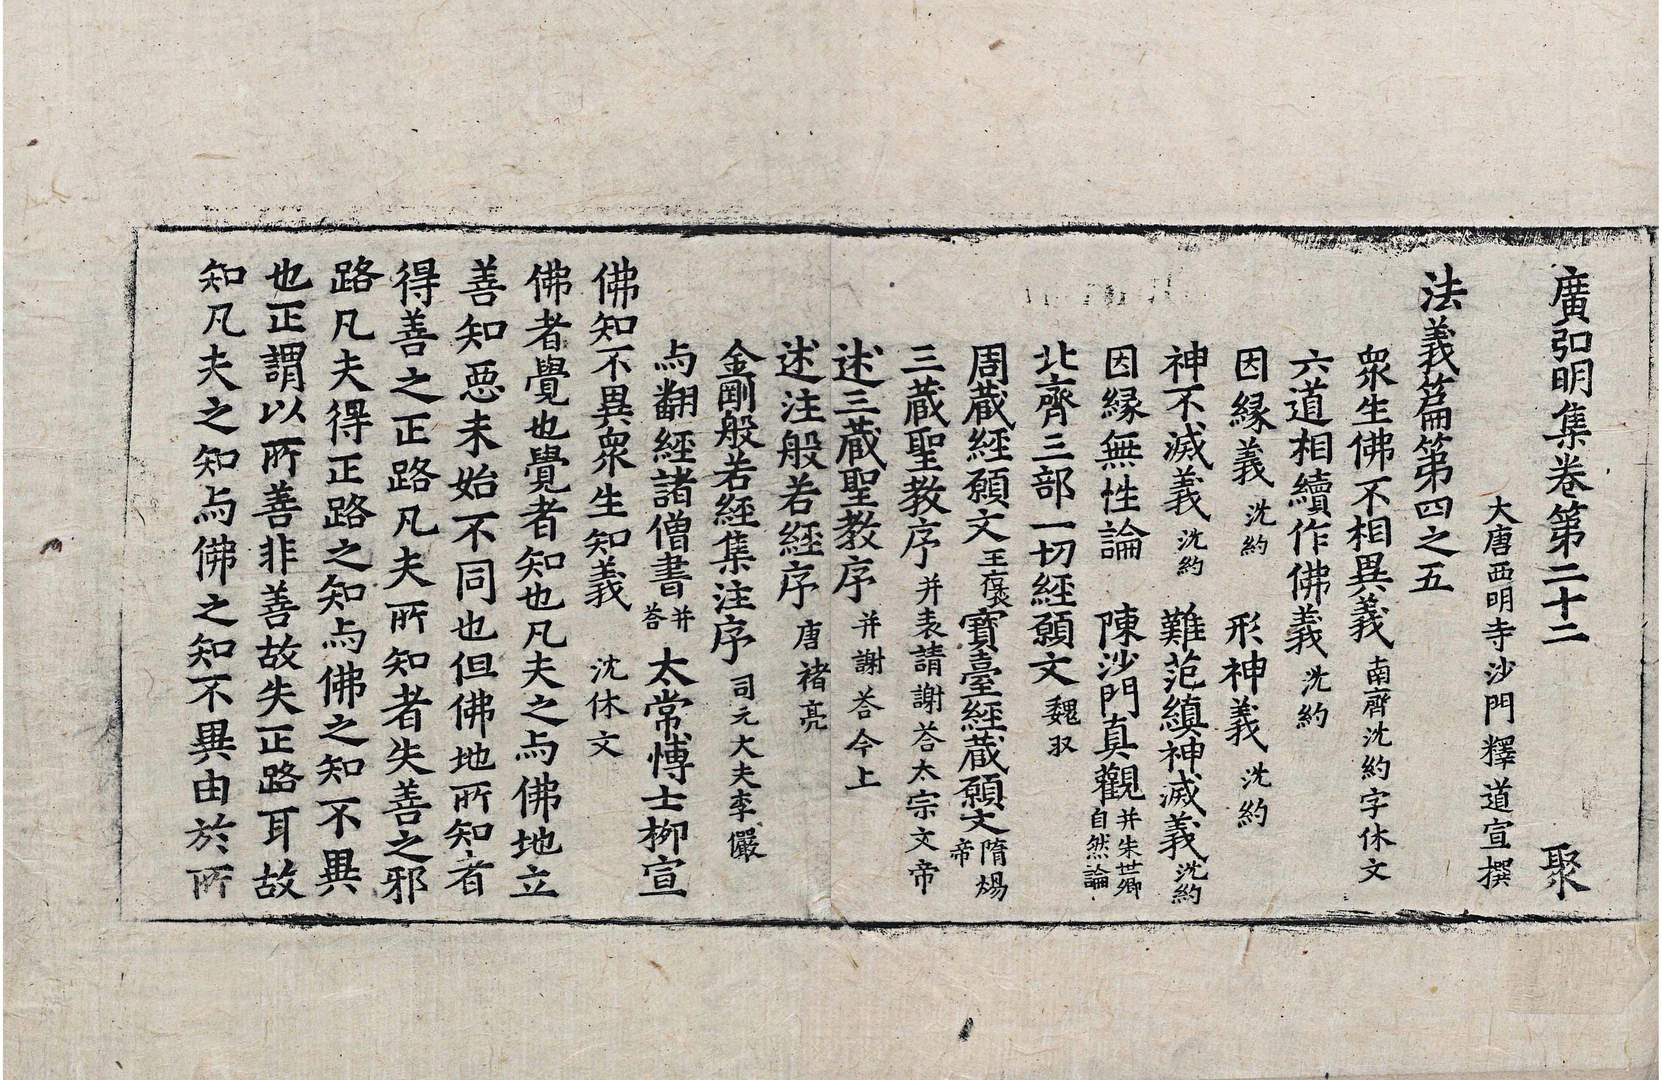 廣弘明集卷第二十二 聚
大唐西明寺沙門釋道宣撰
法義篇第四之五
衆生佛不相異義 南齊沈約字休文
六道相續作佛義 沈約
因縁義 沈約 形神義 沈約
神不滅義 沈約 難范縝神滅義 沈約
因縁無性論 陳沙門真觀 并朱世卿自然論
北齊三部一切經願文 魏収
周蔵經願文 王褒 寶臺經蔵願文 隋煬帝
三蔵聖教序 并表請謝荅太宗文帝
述三蔵聖教序 并謝荅今上
述注般若經序 唐褚亮
金剛般若經集注序 司元大夫李儼
与翻經諸僧書 并荅 太常愽士栁宣
佛知不異衆生知義 沈休文
佛者覺也覺者知也凡夫之与佛地立
善知惡未始不同也但佛地所知者
得善之正路凡夫所知者失善之邪
路凡夫得正路之知与佛之知不異
也正謂以所善非善故失正路耳故
知凡夫之知与佛之知不異由於所